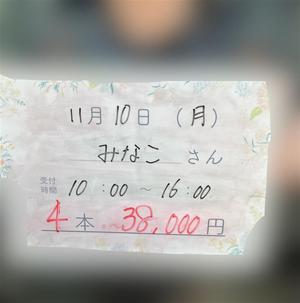 11月10日 (月)
みなこ さん
受付時間 10:00~16:00
4本 38,000円